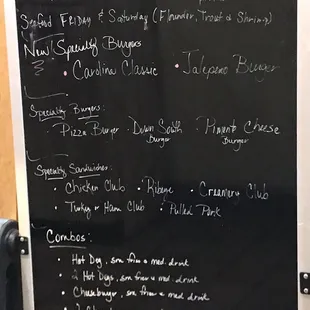 Seafood FRIDAY & Saturday (Flounder, Trout & Shrimp)
New Specialty Burgers
• Carolina Classic • Jalapeno Burger
Specialty Burgers:
• Pizza Burger • Down South Burger • Pimento Cheese Burger
Specialty Sandwiches:
• Chicken Club • Ribeye • Creamery Club
• Turkey & Ham Club • Pulled Pork
Combos:
• Hot Dog, sm fries & med. drink
• 2 Hot Dogs, sm fries & med. drink
• Cheeseburger, sm fries & med. drink